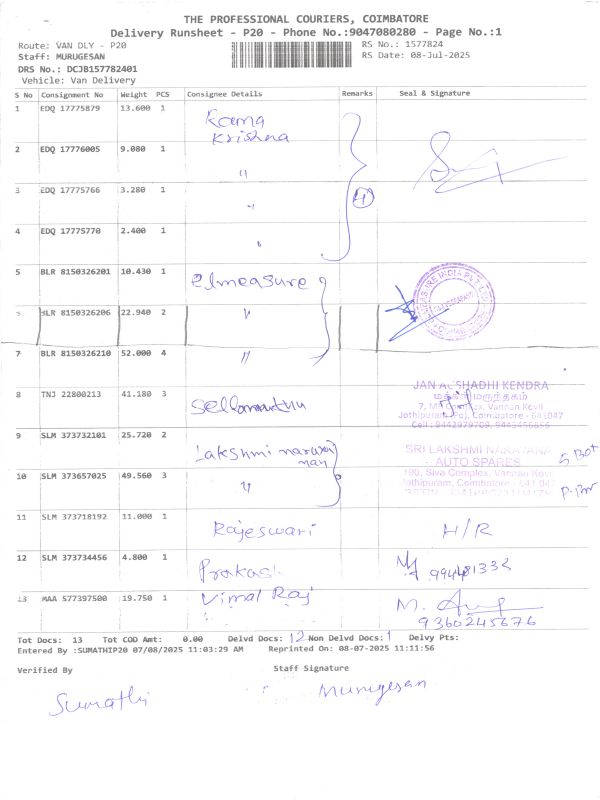 THE PROFESSIONAL COURIERS, COIMBATORE
Delivery Runsheet - P20 - Phone No.:9047080280 - Page No.:1
Route: VAN DLY - P20
RS No.: 1577824
Staff: MURUGESAN
RS Date: 08-Jul-2025
DRS No.: DCJB157782401
Vehicle: Van Delivery
S No Consignment No Weight PCS Consignee Details Remarks Seal & Signature
1 EDQ 17775879 13.600 1 Rama Krishna
2 EDQ 17776005 9.080 1 "
3 EDQ 17775766 3.280 1 " 4
4 EDQ 17775770 2.400 1 "
5 BLR 8150326201 10.430 1 elmeasure
BLR 8150326206 22.940 2 "
7 BLR 8150326210 52.000 4 "
8 TNJ 22800213 41.180 3 Sellamuthu
JAN AUSHADHI KENDRA
மக்கள் மருந்தகம்
Vannan Kovil
Jothipuram (Po), Coimbatore - 641047
9 SLM 373732101 25.720 2 Lakshmi narayanan
SRI LAKSHMI NARAYANA
AUTO SPARES
190, Siva Complex, Vannan Kovil
Jothipuram, Coimbatore - 641 047
10 SLM 373657025 49.560 3 "
11 SLM 373718192 11.000 1 Rajeswari H/R
12 SLM 373734456 4.800 1 Prakash
13 MAA 577397500 19.750 1 Vimal Raj
9360245676
Tot Docs: 13 Tot COD Amt: 0.00 Delvd Docs: 12 Non Delvd Docs: 1 Delvy Pts:
Entered By :SUMATHIP20 07/08/2025 11:03:29 AM Reprinted On: 08-07-2025 11:11:56
Verified By Staff Signature
Sumathi Murugesan